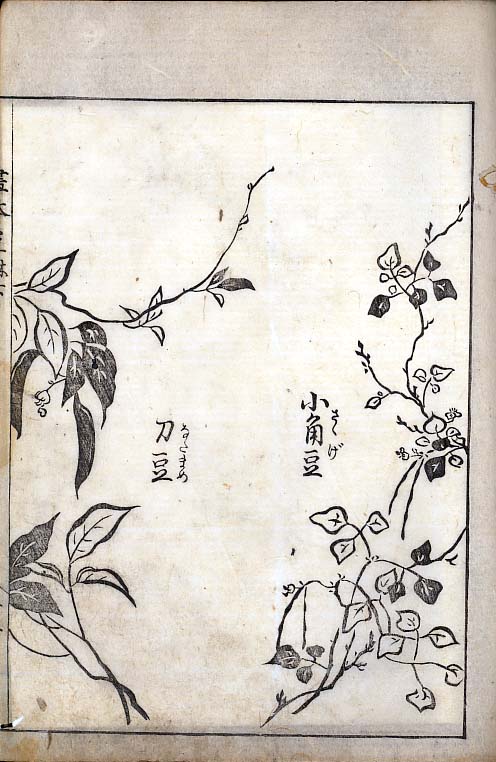 小角豆
さゝげ
刀豆
なたまめ